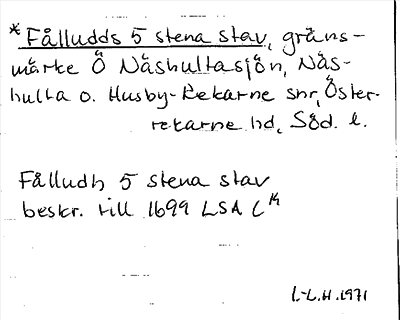 * Fålludds 5 stena stav, gräns-
märke Ö Näshultasjön, Näs-
hulta o. Husby-Rekarne snr, Öster-
rekarne hd, Söd. l.
Fålludh 5 stena stav
beskr. till 1699 LSA C
I.-L.H. 1971